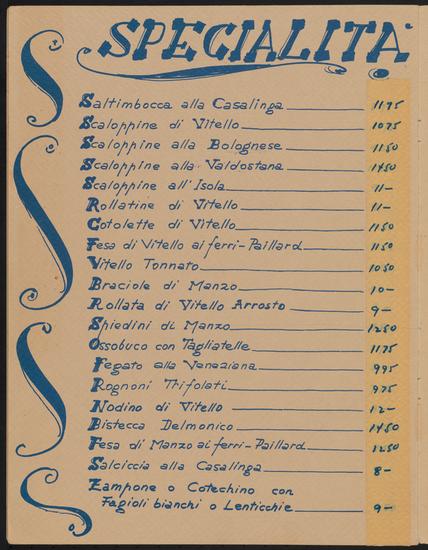 SPECIALITA
Saltimbocca alla Casalinga 1175
Scaloppine di Vitello 1075
Scaloppine alla Bolognese 1150
Scaloppine alla Valdostana 1450
Scaloppine all'Isola 11-
Rollatine di Vitello 11-
Cotolette di Vitello 1150
Fesa di Vitello ai ferri-Paillard 1150
Vitello Tonnato 1050
Braciole di Manzo 10-
Rollata di Vitello Arrosto 9-
Spiedini di Manzo 1250
Ossobuco con Tagliatelle 1175
Fegato alla Veneziana 995
Rognoni Trifolati 975
Nodino di Vitello 12-
Bistecca Delmonico 1450
Fesa di Manzo ai ferri-Paillard 1250
Salciccia alla Casalinga 8-
Zampone o Cotechino con
Fagioli bianchi o Lenticchie 9-